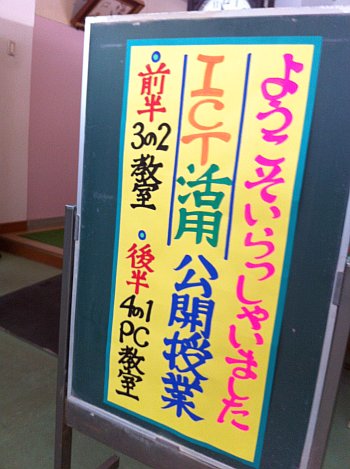 ようこそいらっしゃいました
ICT活用 公開授業
・前半 3の2 教室
・後半 4の1 PC教室